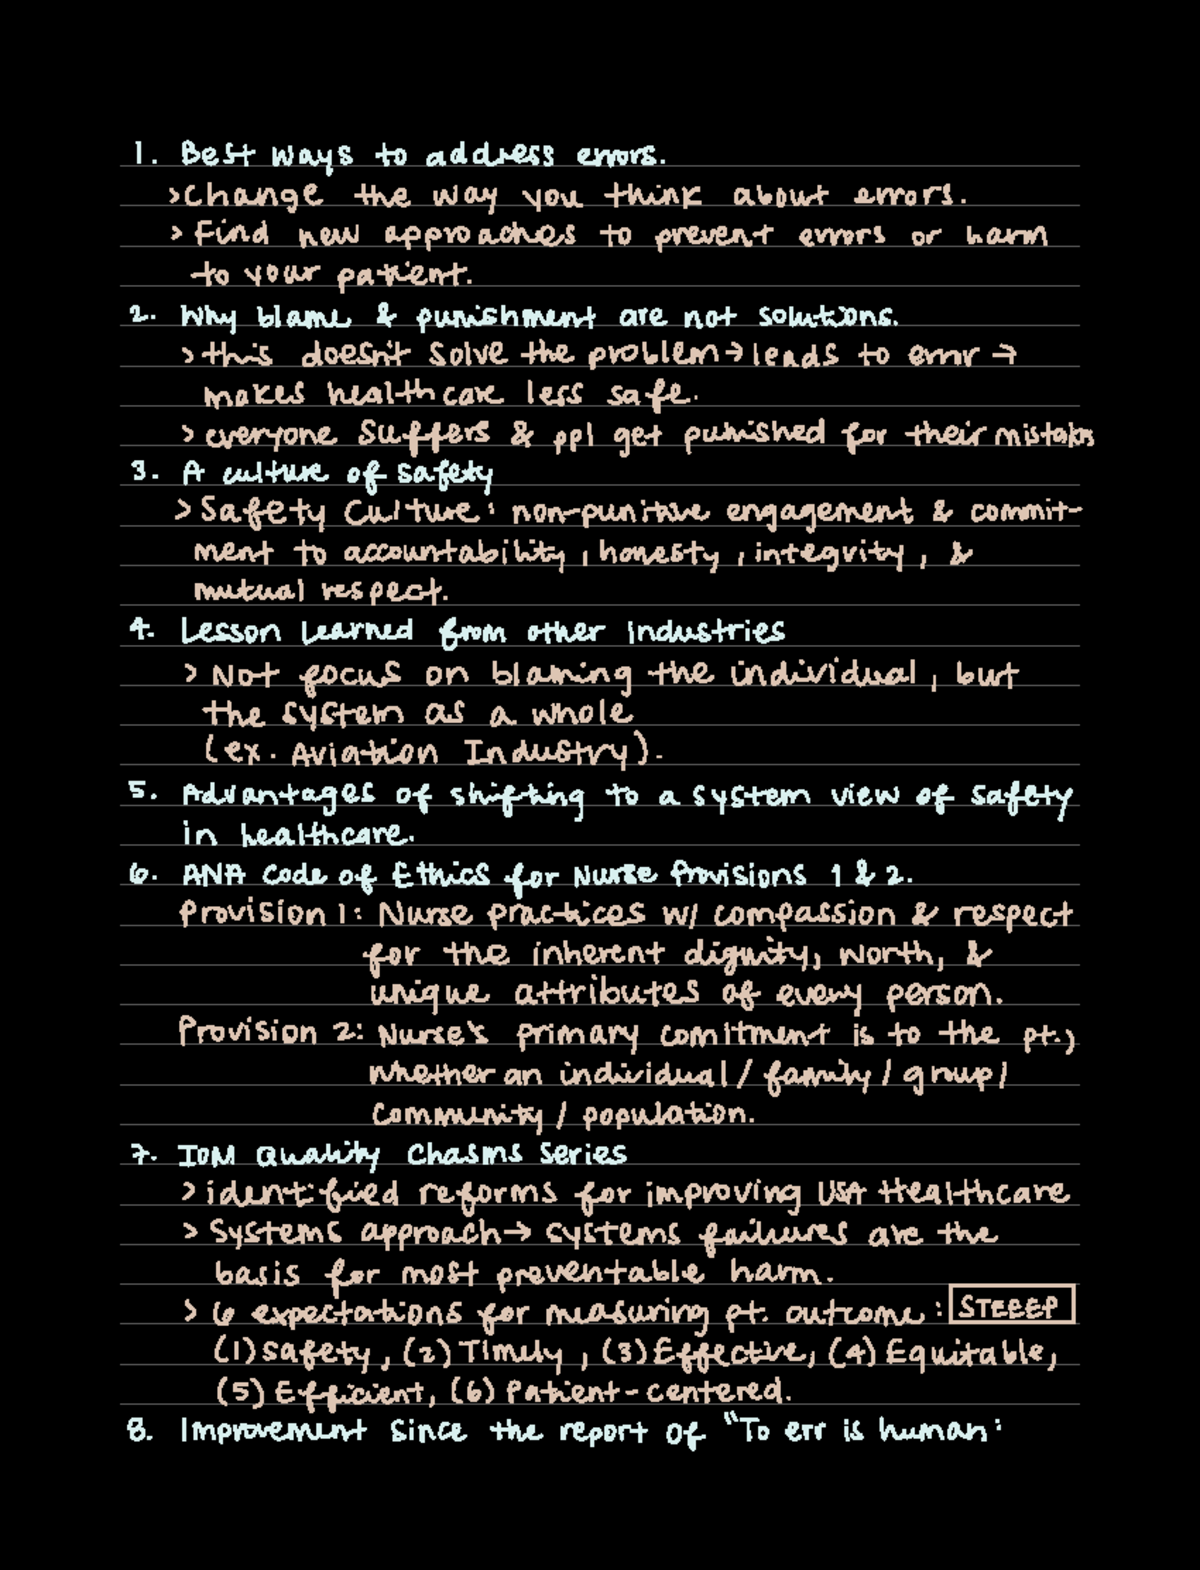 1. Best ways to address errors.
>Change the way you think about errors.
> Find new approaches to prevent errors or harm
to your patient.
2. Why blame & punishment are not solutions.
> this doesn't solve the problem → leads to error →
makes healthcare less safe.
> everyone suffers & ppl get punished for their mistakes
3. A culture of safety
> Safety Culture: non-punitive engagement & commit-
ment to accountability, honesty, integrity, &
mutual respect.
4. Lesson Learned from other industries
> Not focus on blaming the individual, but
the system as a whole
(ex. Aviation Industry).
5. Advantages of shifting to a system view of safety
in healthcare.
6. ANA Code of Ethics for Nurse Provisions 1 & 2.
Provision 1: Nurse practices w/ compassion & respect
for the inherent dignity, worth, &
unique attributes of every person.
Provision 2: Nurse's primary comitment is to the pt.,
whether an individual / family / group /
community / population.
7. IOM Quality Chasms Series
> identified reforms for improving USA Healthcare
> Systems approach → systems failures are the
basis for most preventable harm.
> 6 expectations for measuring pt. outcome: STEEEP
(1) Safety, (2) Timely, (3) Effective, (4) Equitable,
(5) Efficient, (6) Patient-centered.
8. Improvement since the report of "To err is human: